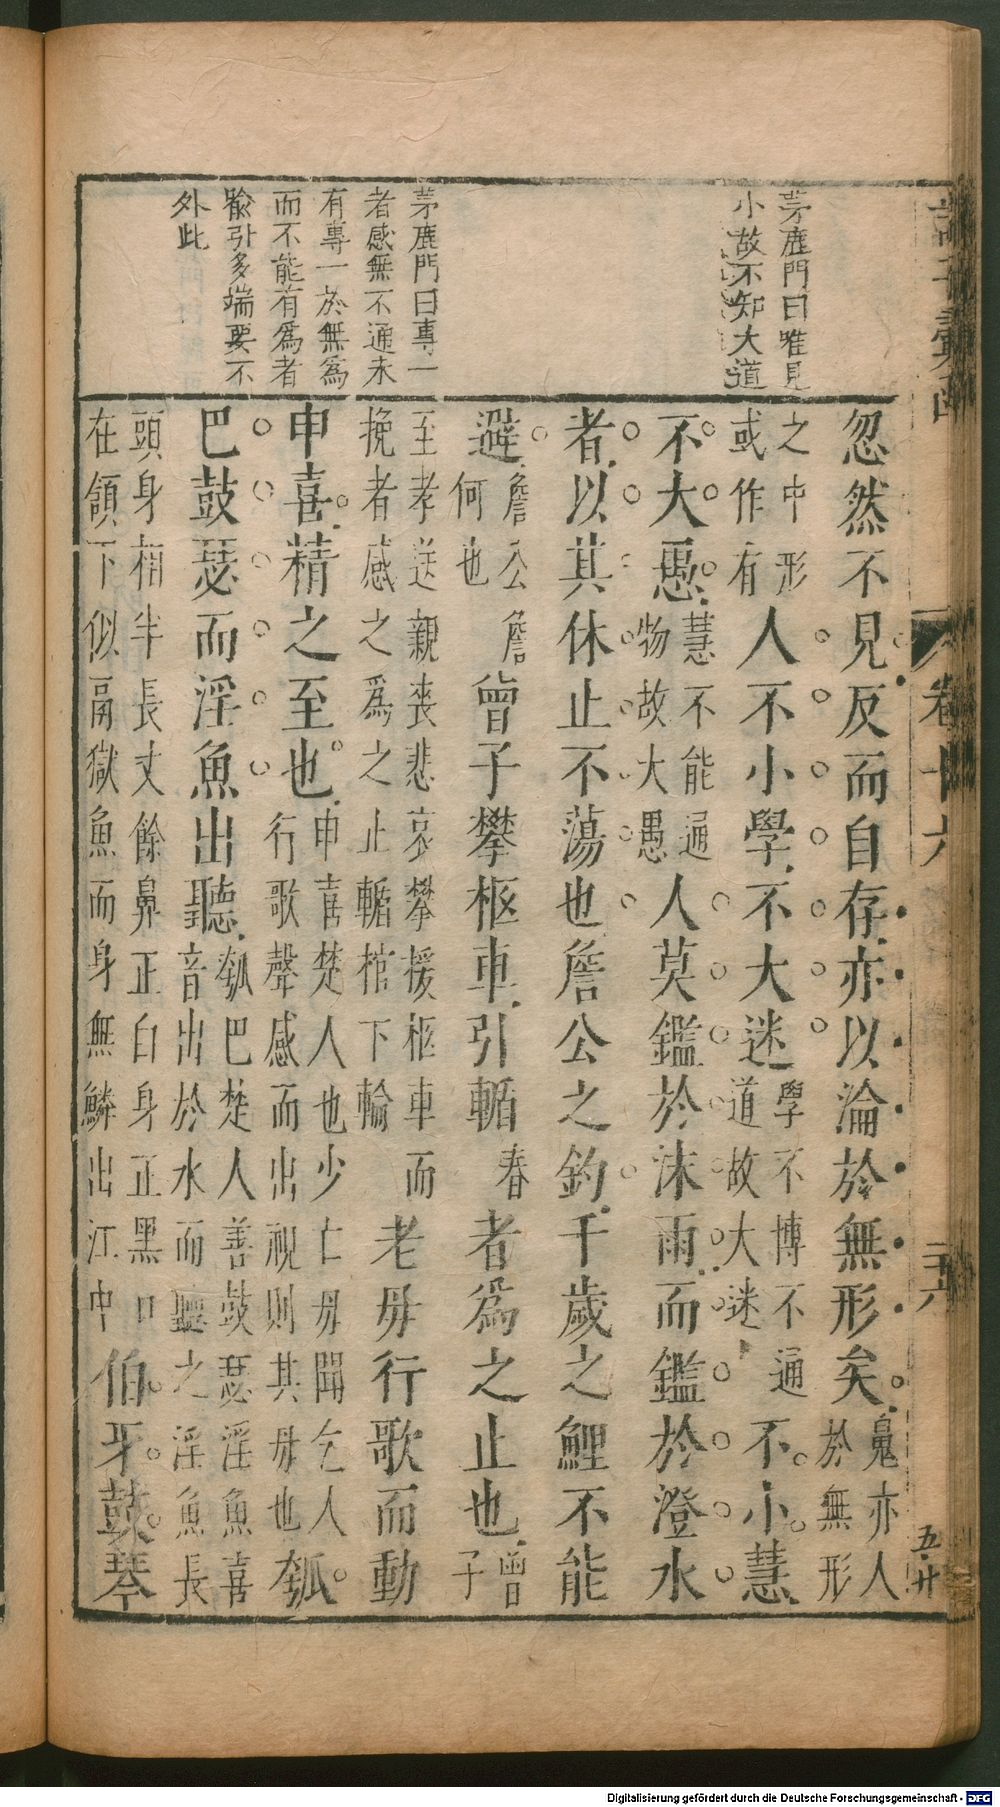 茅鹿門曰唯見
小故不知大道
茅鹿門曰專一
者感無不通未
有專一於無為
而不能有為者
喻引多端要不
外此
忽然不見反而自存亦以淪於無形矣鬼亦人於無形
之中形或作有人不小學不大迷學不博不通道故大迷不小慧
不大愚慧不能通物故大愚人莫鑑於沬雨而鑑於澄水
者以其休止不蕩也詹公之釣千歲之鯉不能
避詹公詹何也曾子攀柩車引輴春者為之止也曾子
至孝送親喪悲哀攀援柩車而挽者感之為之止輴棺下輪老毋行歌而動
申喜精之至也申喜楚人也少亡毋聞乞人行歌聲感而出視則其毋也瓠
巴鼓瑟而淫魚出聽瓠巴楚人善鼓瑟淫魚喜音出於水而聽之淫魚長
頭身相半長丈餘鼻正白身正黑口在頷下似鬲獄魚而身無鱗出江中伯牙鼓琴
卷十六
二十六
五廿
Digitalisierung gefördert durch die Deutsche Forschungsgemeinschaft - DFG